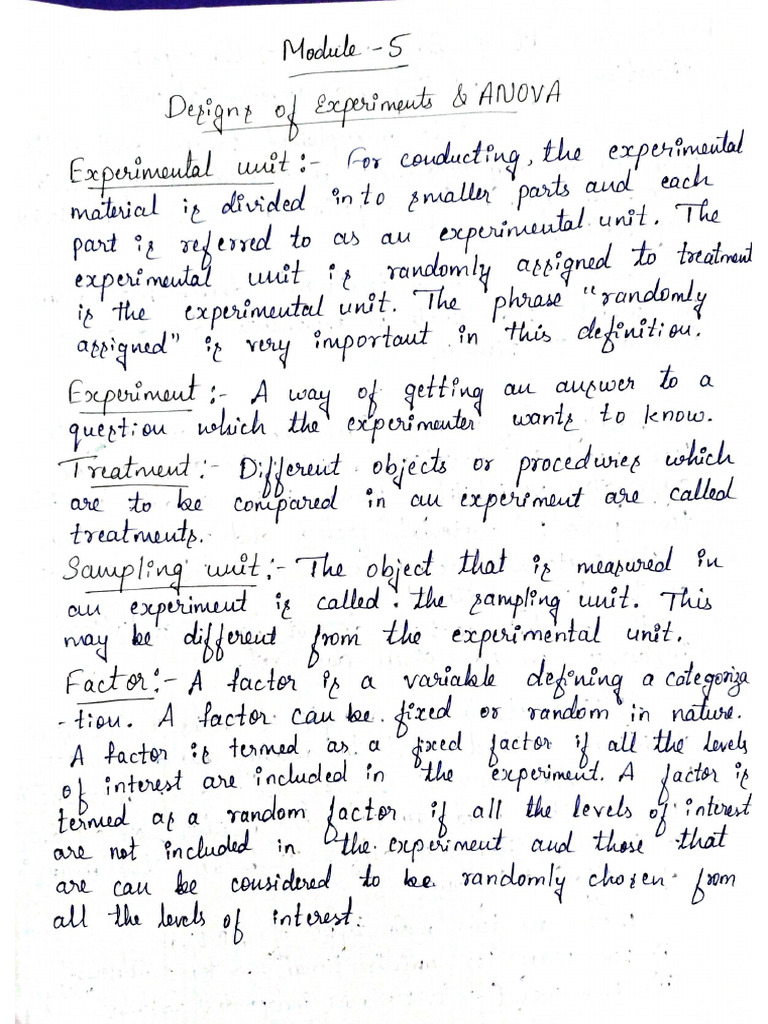 Module - 5
Designs of Experiments & ANOVA
Experimental unit :- For conducting, the experimental
material is divided into smaller parts and each
part is referred to as an experimental unit. The
experimental unit is randomly assigned to treatment
is the experimental unit. The phrase "randomly
assigned" is very important in this definition.
Experiment :- A way of getting an answer to a
question which the experimenter wants to know.
Treatment :- Different objects or procedures which
are to be compared in an experiment are called
treatments.
Sampling unit :- The object that is measured in
an experiment is called the sampling unit. This
may be different from the experimental unit.
Factor :- A factor is a variable defining a categoriza
-tion. A factor can be fixed or random in nature.
A factor is termed as a fixed factor if all the levels
of interest are included in the experiment. A factor is
termed as a random factor if all the levels of interest
are not included in the experiment and those that
are can be considered to be randomly chosen from
all the levels of interest.